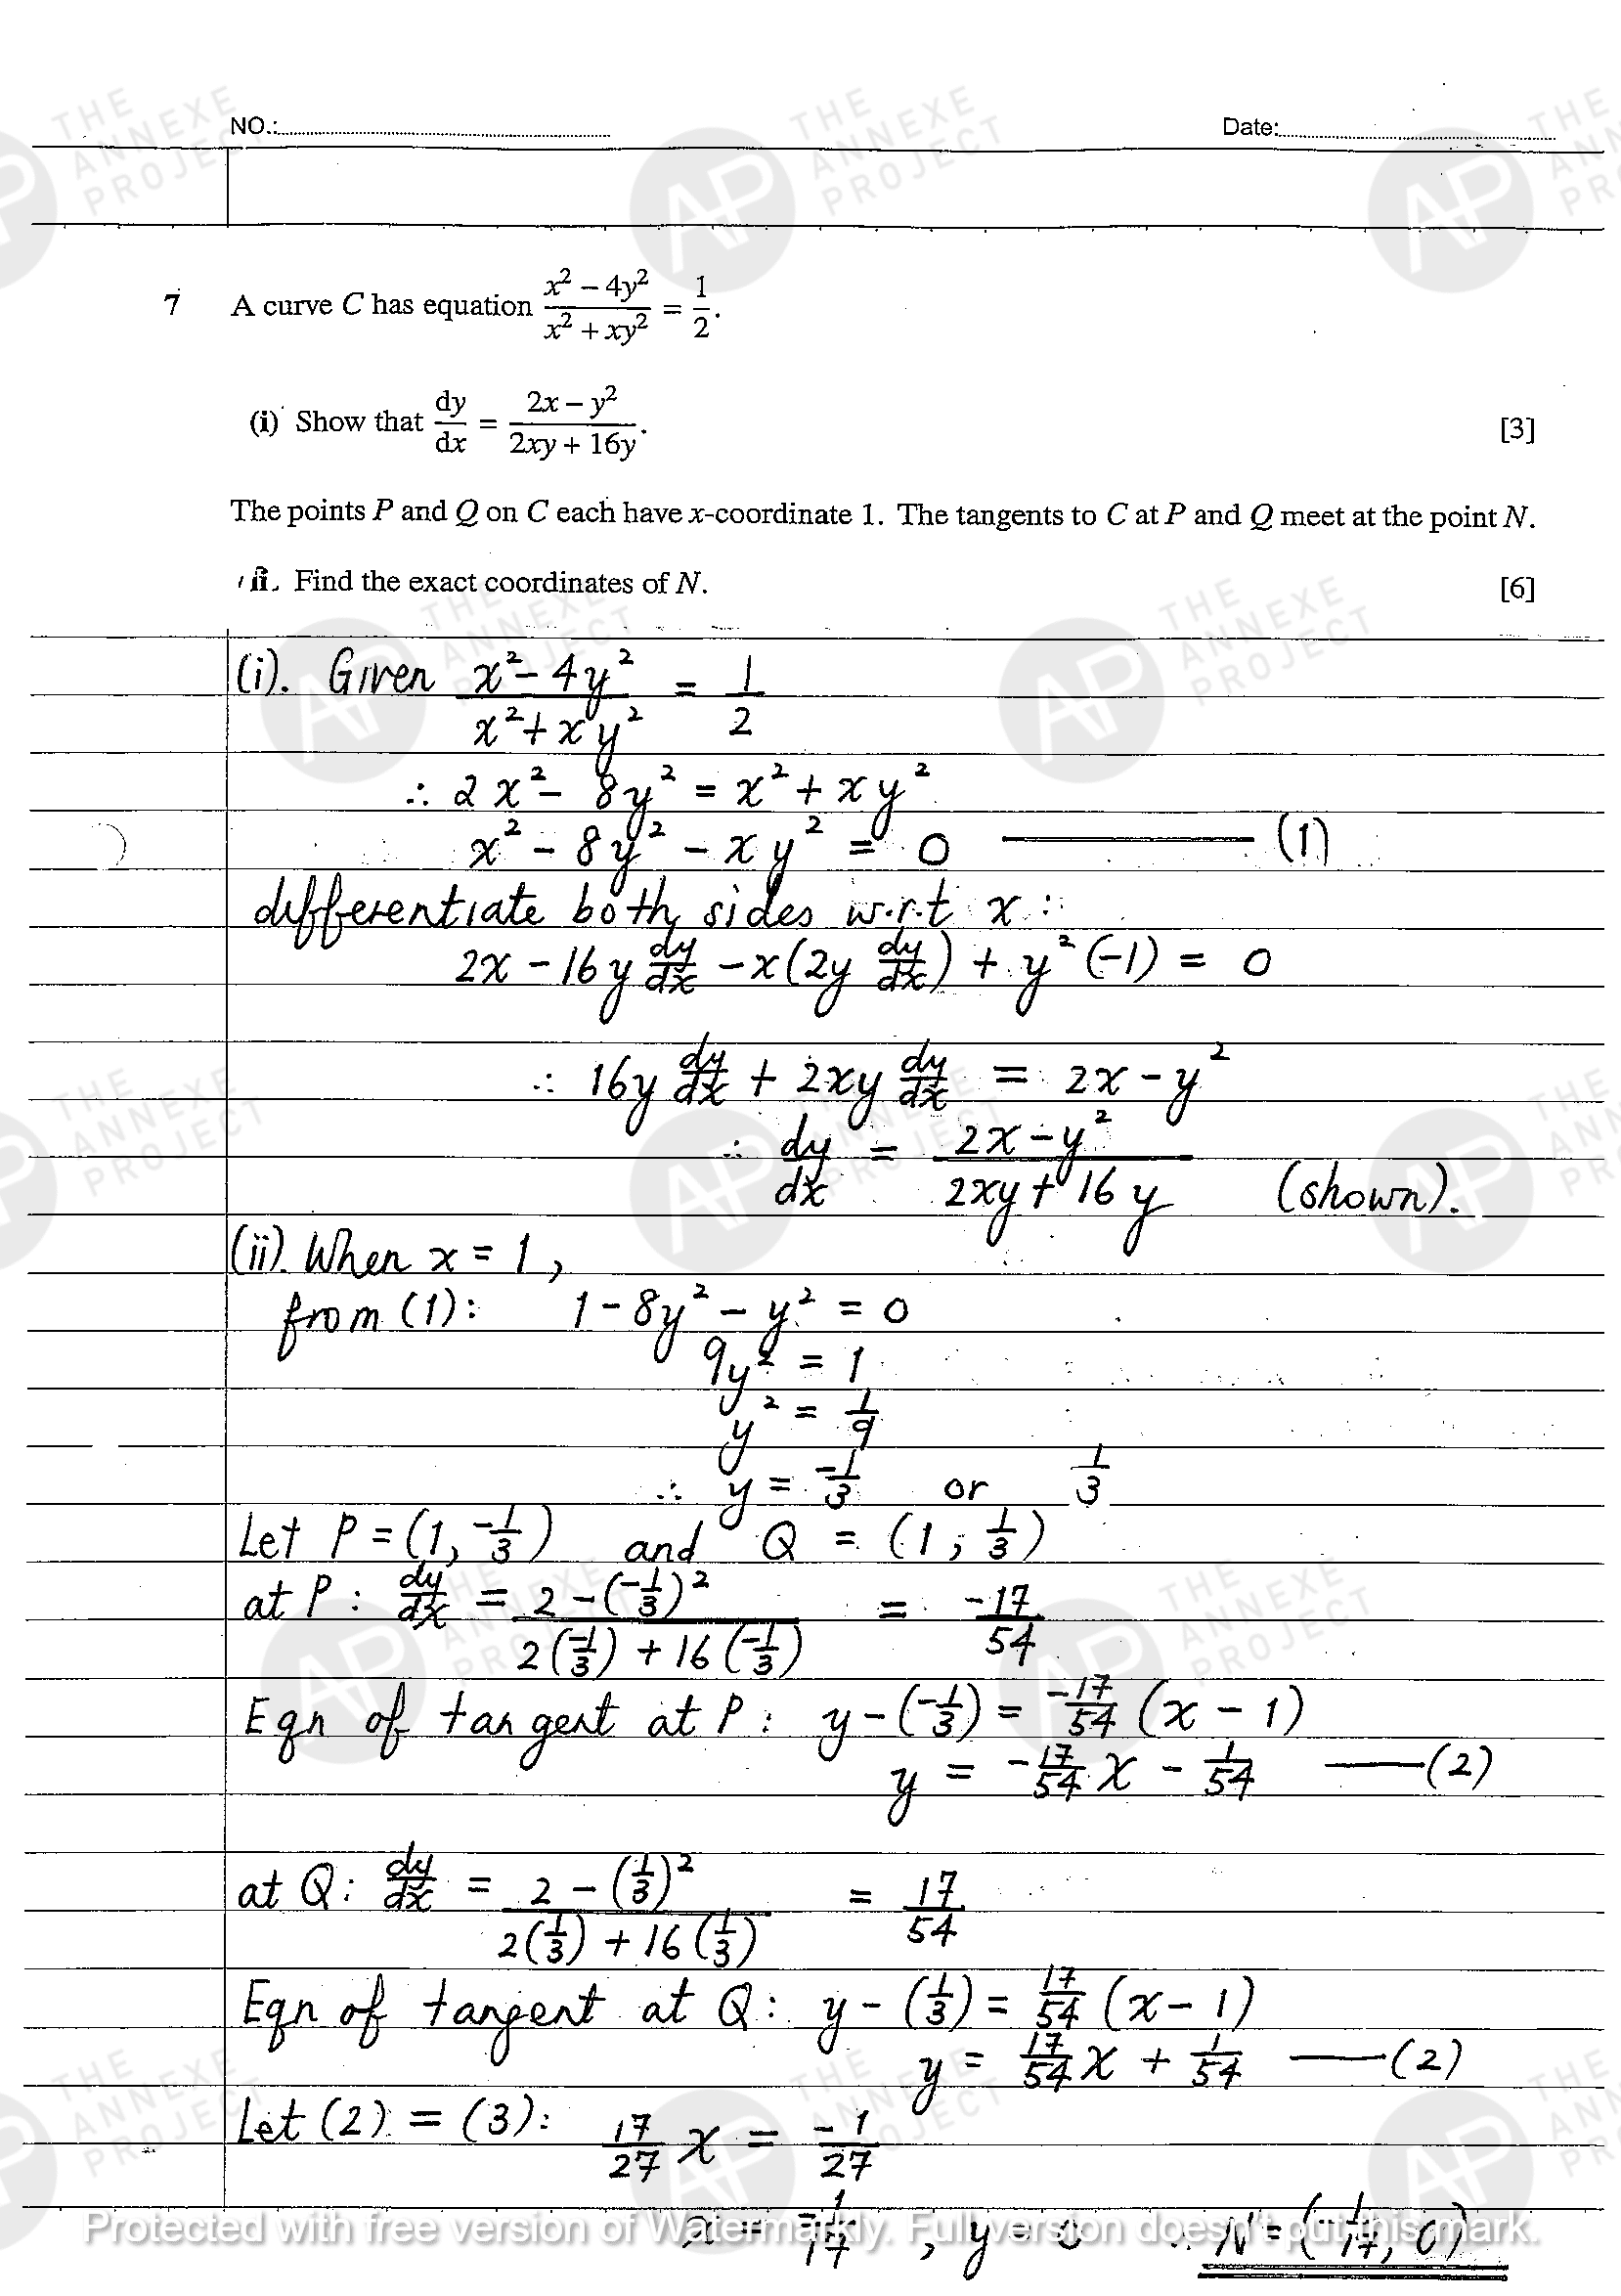 NO.: Date:
7 A curve C has equation (x² − 4y²)/(x² + xy²) = 1/2.
(i) Show that dy/dx = (2x − y²)/(2xy + 16y). [3]
The points P and Q on C each have x-coordinate 1. The tangents to C at P and Q meet at the point N.
ii. Find the exact coordinates of N. [6]
(i). Given (x² − 4y²)/(x² + xy²) = 1/2
∴ 2x² − 8y² = x² + xy²
x² − 8y² − xy² = 0 —— (1)
differentiate both sides w.r.t x :
2x − 16y dy/dx − x(2y dy/dx) + y²(−1) = 0
∴ 16y dy/dx + 2xy dy/dx = 2x − y²
∴ dy/dx = (2x − y²)/(2xy + 16y) (shown).
(ii). When x = 1,
from (1): 1 − 8y² − y² = 0
9y² = 1
y² = 1/9
∴ y = −1/3 or 1/3
Let P = (1, −1/3) and Q = (1, 1/3)
at P : dy/dx = (2 − (−1/3)²)/(2(−1/3) + 16(−1/3)) = −17/54
Eqn of tangent at P : y − (−1/3) = −17/54 (x − 1)
y = −17/54 x − 1/54 —— (2)
at Q : dy/dx = (2 − (1/3)²)/(2(1/3) + 16(1/3)) = 17/54
Eqn of tangent at Q : y − (1/3) = 17/54 (x − 1)
y = 17/54 x + 1/54 —— (2)
Let (2) = (3): 17/27 x = −1/27
x = −1/17, y = 0 ∴ N = (−1/17, 0)
Protected with free version of Watermarkly. Full version doesn't put this mark.
THE ANNEXE PROJECT
AP